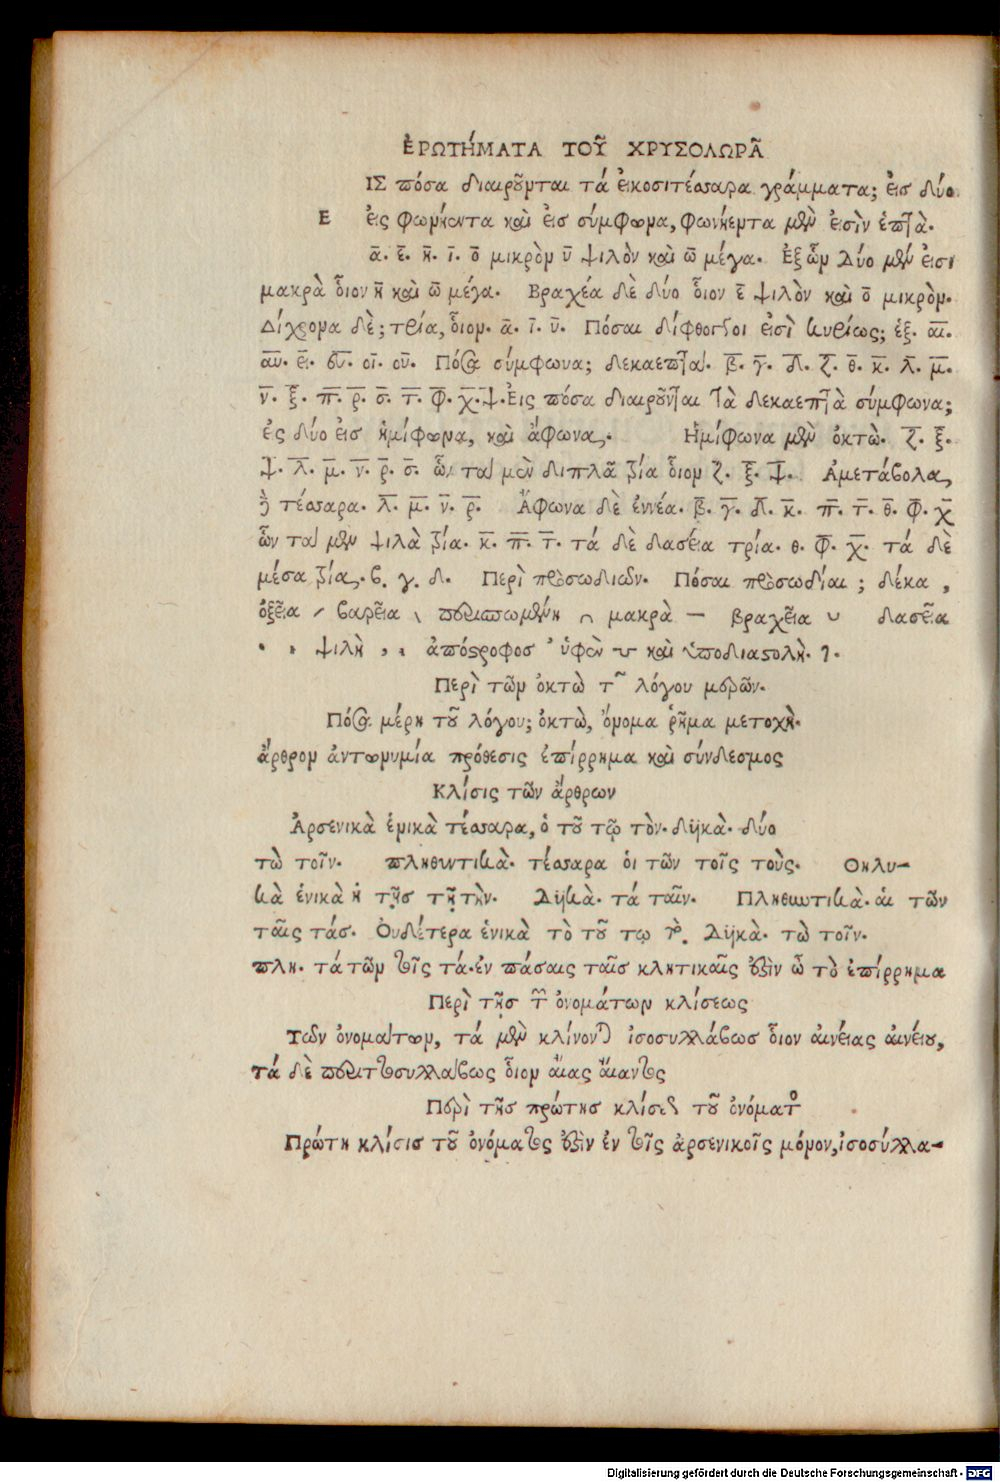 ἘΡΩΤΉΜΑΤΑ ΤΟΥ͂ ΧΡΥΣΟΛΩΡΑ͂
ΙΣ πόσα διαιροῦνται τά εἰκοσιτέσσαρα γράμματα; εἰσ δύο.
Ε εἰς φωνήεντα καὶ εἰσ σύμφωνα, φωνήεντα μὲν εἰσὶν ἑπτὰ.
α̅. ε̅. η̅. ι̅. ο̅ μικρὸν υ̅ ψιλὸν καὶ ω̅ μέγα. Ἐξ ὧν Δύο μὲν εἰσι
μακρὰ οἷον η̅ καὶ ω̅ μέγα. Βραχέα δὲ δύο οἷον ε̅ ψιλὸν καὶ ο̅ μικρὸν.
Δίχρονα δὲ; τρία, οἷον. α̅. ι̅. υ̅. Πόσαι δίφθογγοι εἰσὶ κυρίως; ἑξ. α̅ι̅.
α̅υ̅. ε̅ι̅. ε̅υ̅. ο̅ι̅. ο̅υ̅. Πόσα σύμφωνα; δεκαεπτά. β̅. γ̅. δ̅. ζ̅. θ̅. κ̅. λ̅. μ̅.
ν̅. ξ̅. π̅. ρ̅. σ̅. τ̅. φ̅. χ̅. ψ̅. Ἐις πόσα διαιροῦνται τὰ δεκαεπτὰ σύμφωνα;
ἐς δύο εἰσ ἡμίφωνα, καὶ ἄφωνα. Ἡμίφωνα μὲν ὀκτὼ. ζ̅. ξ̅.
ψ̅. λ̅. μ̅. ν̅. ρ̅. σ̅. ὧν τὰ μὲν διπλᾶ τρία οἷον ζ̅. ξ̅. ψ̅. Ἀμετάβολα,
ἢ τέσσαρα. λ̅. μ̅. ν̅. ρ̅. Ἄφωνα δὲ ἐννέα. β̅. γ̅. δ̅. κ̅. π̅. τ̅. θ̅. φ̅. χ̅
ὧν τὰ μὲν ψιλὰ τρία. κ̅. π̅. τ̅. τά δὲ δασέια τρία. θ. φ̅. χ̅. τά δὲ
μέσα τρία. β. γ. δ. Περὶ προσωδιῶν. Πόσαι προσωδίαι; δέκα,
ὀξεῖα ´ βαρεῖα ` περισπωμένη ῀ μακρὰ — βραχεῖα ᴗ δασεῖα
ψιλὴ ἀπόστροφοσ ’ ὑφὲν καὶ ὑποδιαστολὴ.
Περὶ τῶν ὀκτὼ τ῀ λόγου μερῶν.
Πόσα μέρη τοῦ λόγου; ὀκτὼ, ὄνομα ῥῆμα μετοχὴ.
ἄρθρον ἀντωνυμία πρόθεσις ἐπίρρημα καὶ σύνδεσμος
Κλίσις τῶν ἄρθρων
Ἀρσενικὰ ἑνικὰ τέσσαρα, ὁ τοῦ τῷ τὸν. δυϊκὰ. δύο
τὼ τοῖν. πληθυντικὰ. τέσσαρα ὁι τῶν τοῖς τοὺς. Θηλυ-
κὰ ἑνικὰ ἡ τῆς τῇ τὴν. Δυϊκὰ. τά ταῖν. Πληθυντικὰ. αἱ τῶν
ταῖς τάσ. Ὀυδέτερα ἑνικὰ τὸ τοῦ τῳ τὸ. Δυϊκὰ. τὼ τοῖν.
πλη. τά τῶν τοῖς τά. ἐν πάσαις ταῖσ κλητικαῖς ἐστὶν ὦ τὸ ἐπίρρημα
Περὶ τῆσ τῶν ὀνομάτων κλίσεως
Τῶν ὀνομάτων, τά μὲν κλίνονται ἰσοσυλλάβωσ οἷον ἀινέιας ἀινέιου,
τά δὲ περιττοσυλλάβως οἷον ἄιας ἄιαντος
Περὶ τῆσ πρώτησ κλίσεως τοῦ ὀνόματος
Πρώτη κλίσισ τοῦ ὀνόματος ἐστὶν ἐν τοῖς ἀρσενικοῖς μόνον, ἰσοσύλλα-
Digitalisierung gefördert durch die Deutsche Forschungsgemeinschaft - DFG